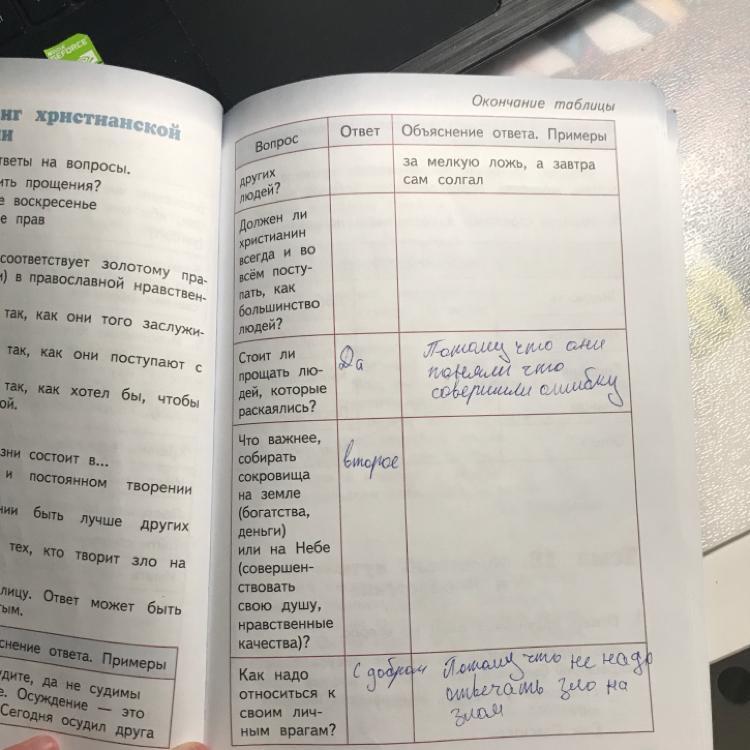 GEFORCE
нг христианской
ии
тветы на вопросы.
ить прощения?
е воскресенье
е прав
соответствует золотому пра-
и) в православной нравствен-
так, как они того заслужи-
так, как они поступают с
так, как хотел бы, чтобы
ой.
зни состоит в...
и постоянном творении
нии быть лучше других
тех, кто творит зло на
лицу. Ответ может быть
тым.
снение ответа. Примеры
удите, да не судимы
е. Осуждение — это
Сегодня осудил друга
Окончание таблицы
Вопрос
Ответ
Объяснение ответа. Примеры
других
людей?
за мелкую ложь, а завтра
сам солгал
Должен ли
христианин
всегда и во
всём посту-
пать, как
большинство
людей?
Стоит ли
прощать лю-
дей, которые
раскаялись?
Да
Потому что они
поняли что
совершили ошибку
Что важнее,
собирать
сокровища
на земле
(богатства,
деньги)
или на Небе
(совершен-
ствовать
свою душу,
нравственные
качества)?
второе
Как надо
относиться к
своим лич-
ным врагам?
С добром
Потому что не надо
отвечать зло на
злом